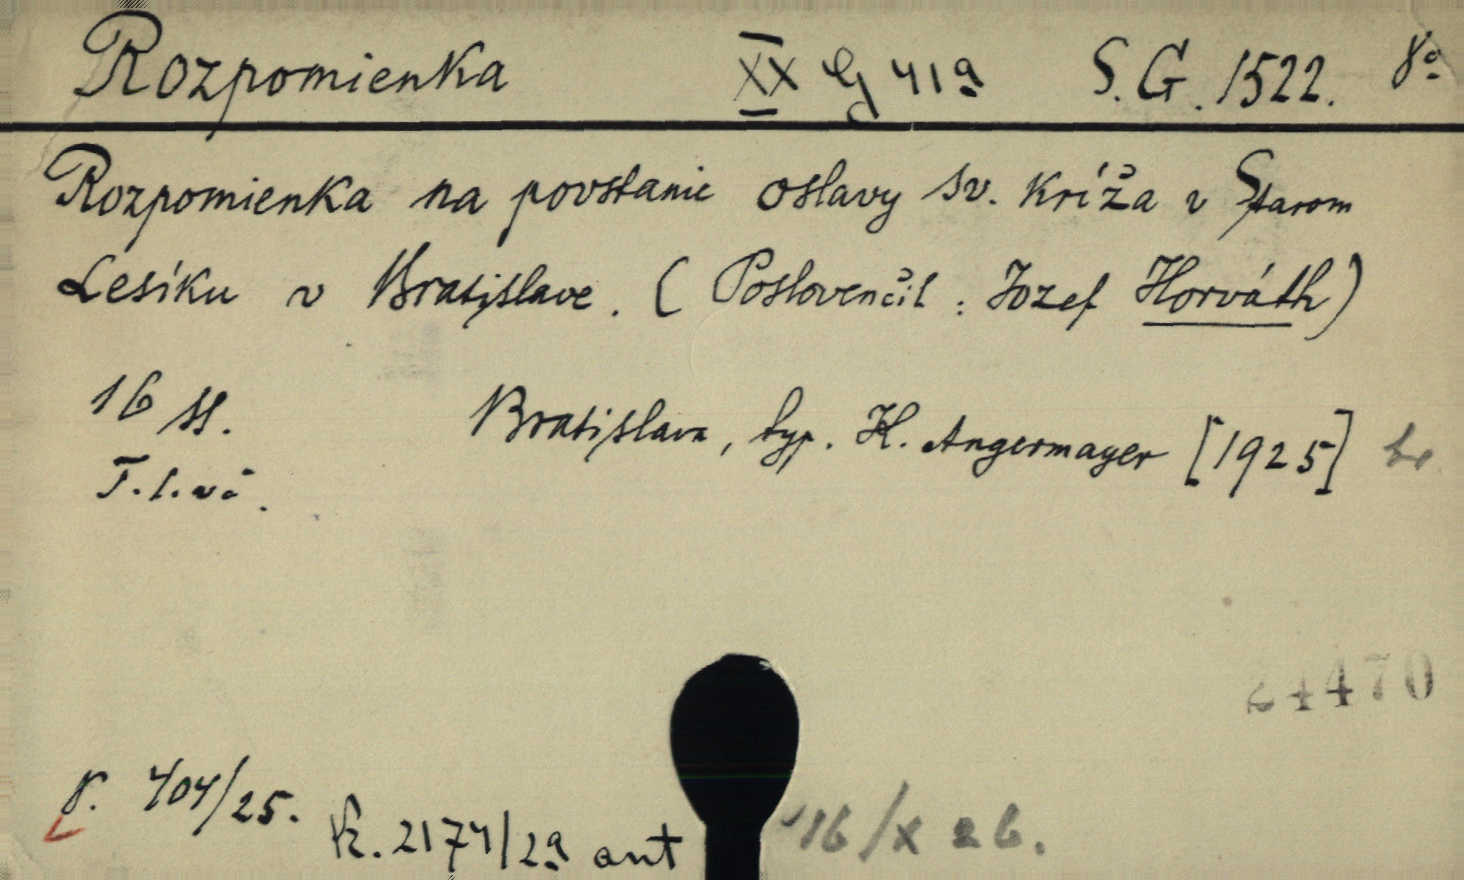 Rozpomienka XX G 419 S.G. 1522. 8°
Rozpomienka na povstanie oslavy sv. Kríža v Starom
Lesíku v Bratislave. (Poslovenčil: Jozef Horváth)
16 ss. Bratislava, typ. K. Angermayer [1925]
T. l. vč.
24470
r. 404/25. K. 2174/29 ant 16/X 26.